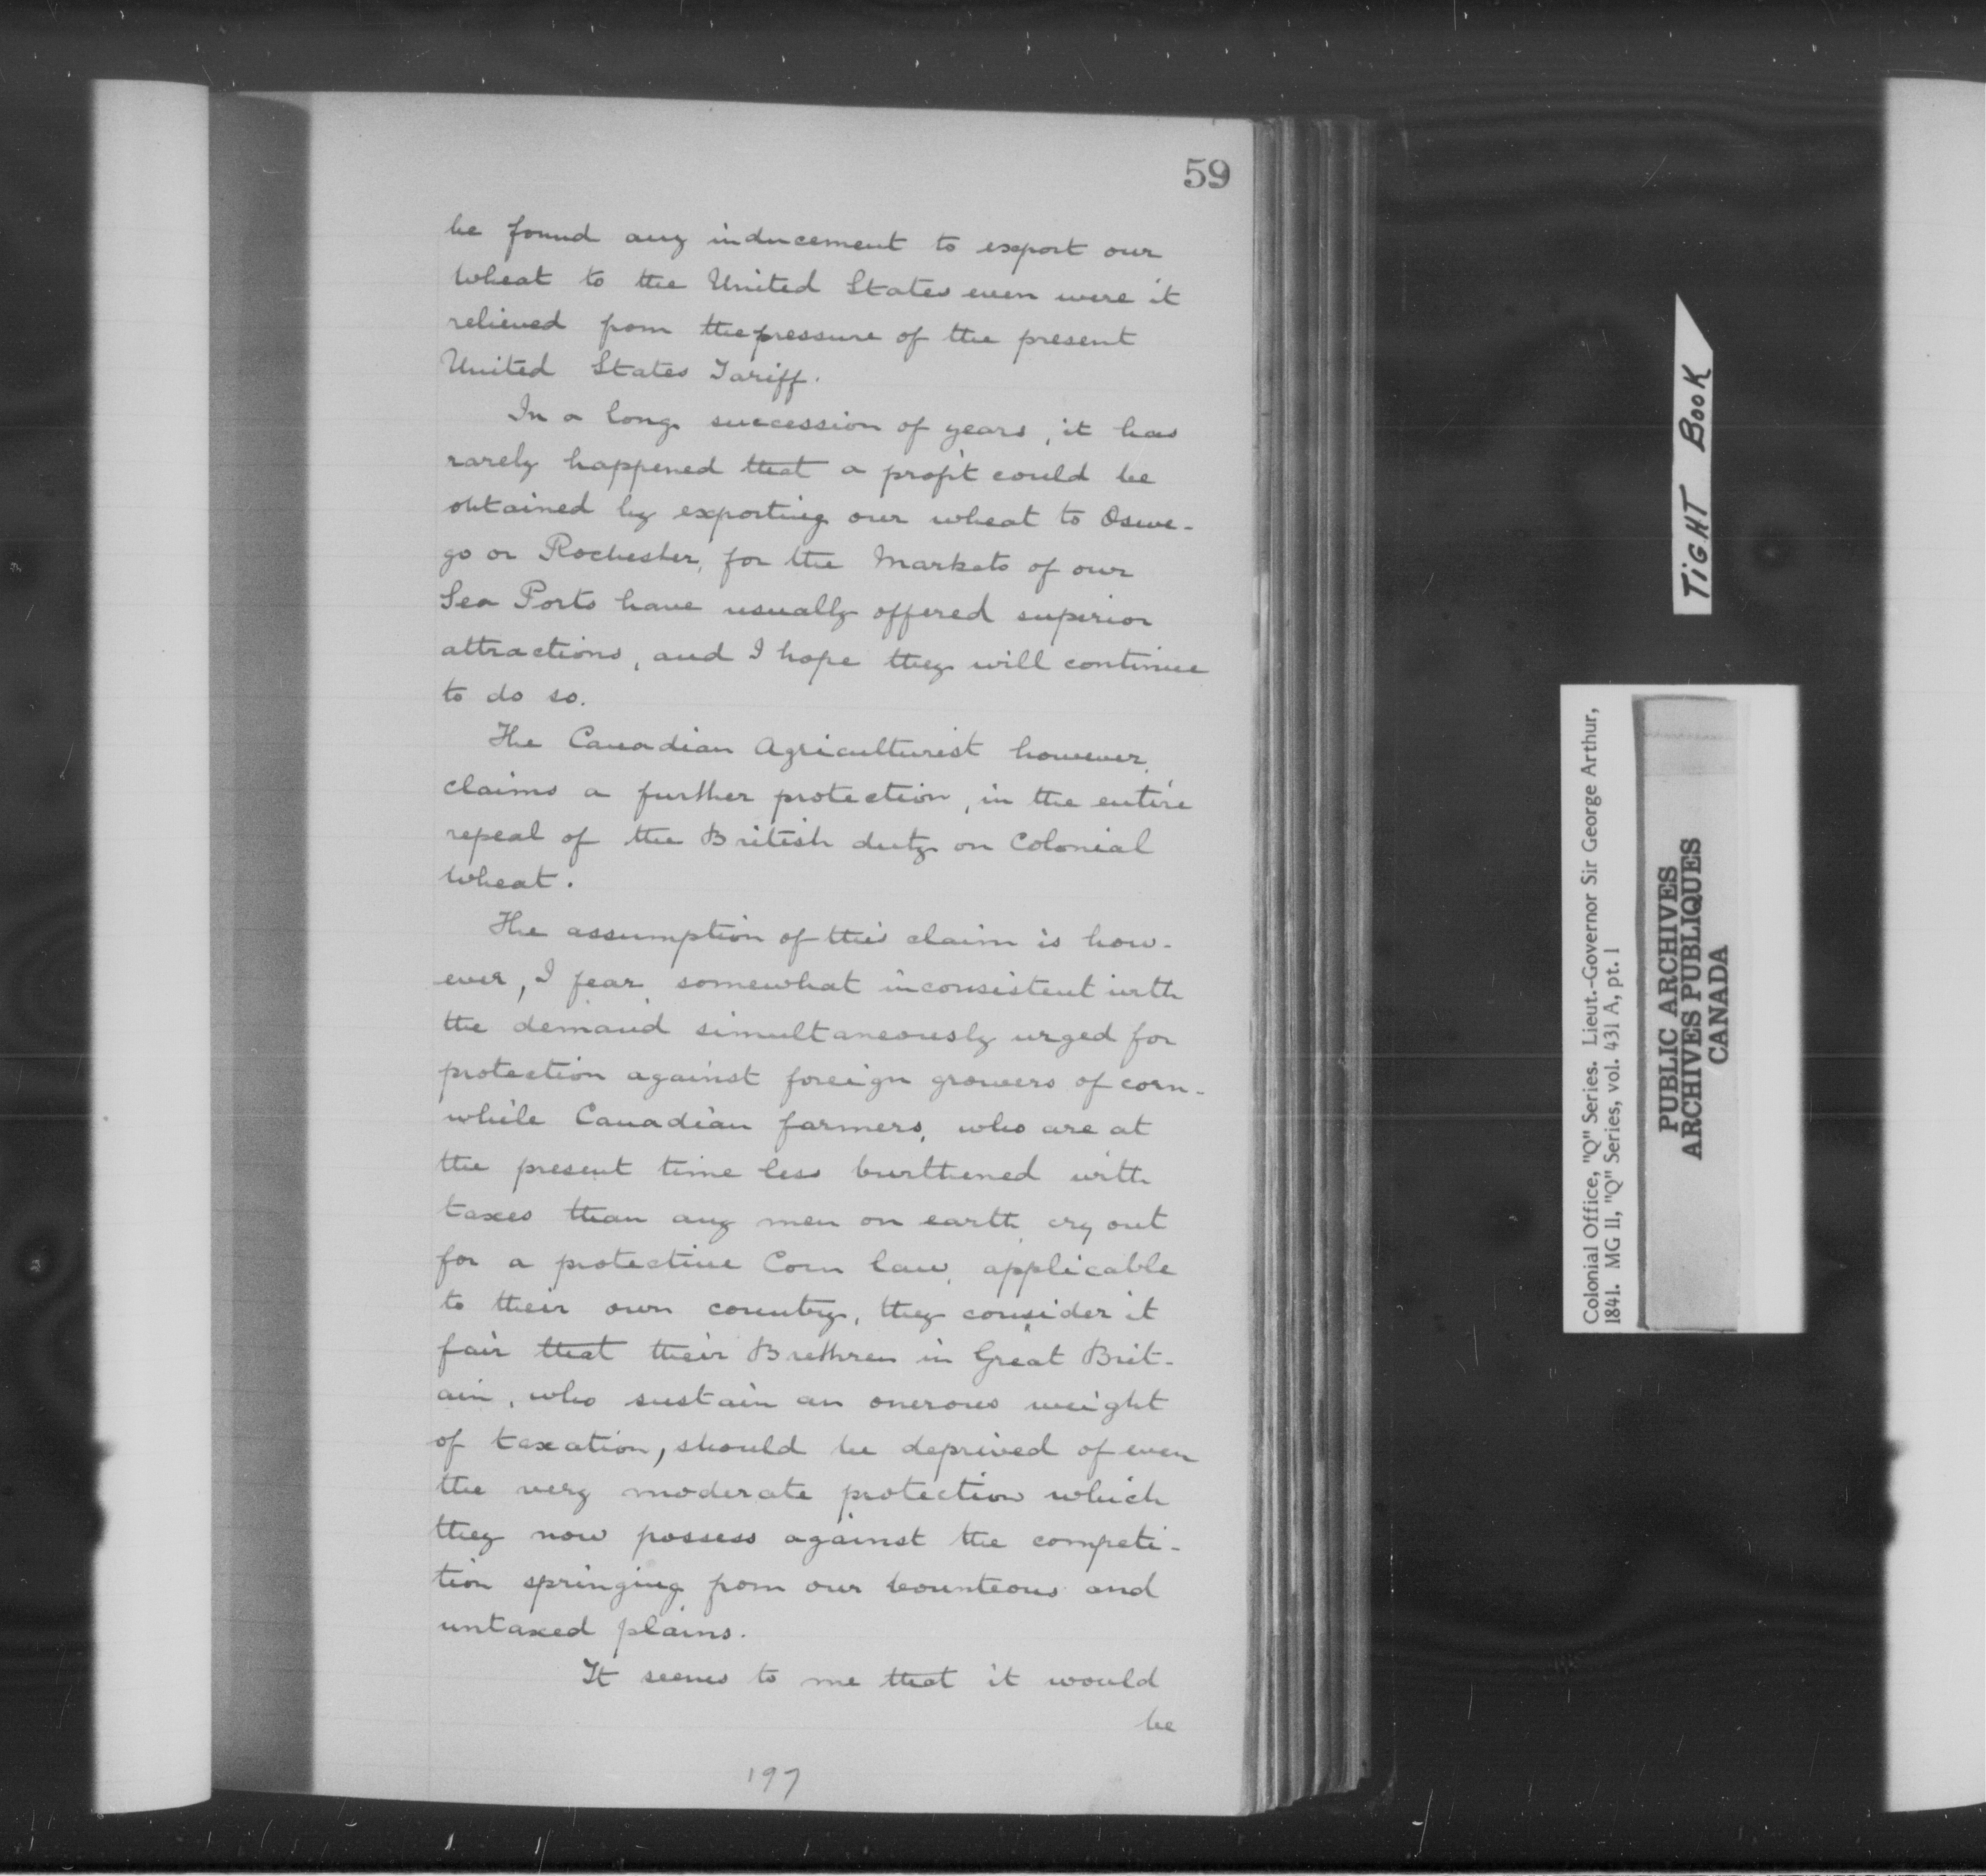 59
be found any inducement to export our
wheat to the United States even were it
relieved from the pressure of the present
United States Tariff.
In a long succession of years, it has
rarely happened that a profit could be
obtained by exporting our wheat to Oswe-
go or Rochester, for the Markets of our
Sea Ports have usually offered superior
attractions, and I hope they will continue
to do so.
The Canadian Agriculturist however,
claims a further protection, in the entire
repeal of the British duty on Colonial
wheat.
The assumption of this claim is how-
ever, I fear, somewhat inconsistent with
the demand simultaneously urged for
protection against foreign growers of corn-
while Canadian farmers, who are at
the present time less burthened with
taxes than any men on earth, cry out
for a protective Corn law, applicable
to their own country, they consider it
fair that their Brethren in Great Brit-
ain, who sustain an onerous weight
of taxation, should be deprived of even
the very moderate protection which
they now possess against the competi-
tion springing from our bounteous and
untaxed plains.
It seems to me that it would
be
197
TIGHT BOOK
Colonial Office, "Q" Series. Lieut.-Governor Sir George Arthur,
1841. MG 11, "Q" Series, vol. 431 A, pt. 1
PUBLIC ARCHIVES
ARCHIVES PUBLIQUES
CANADA